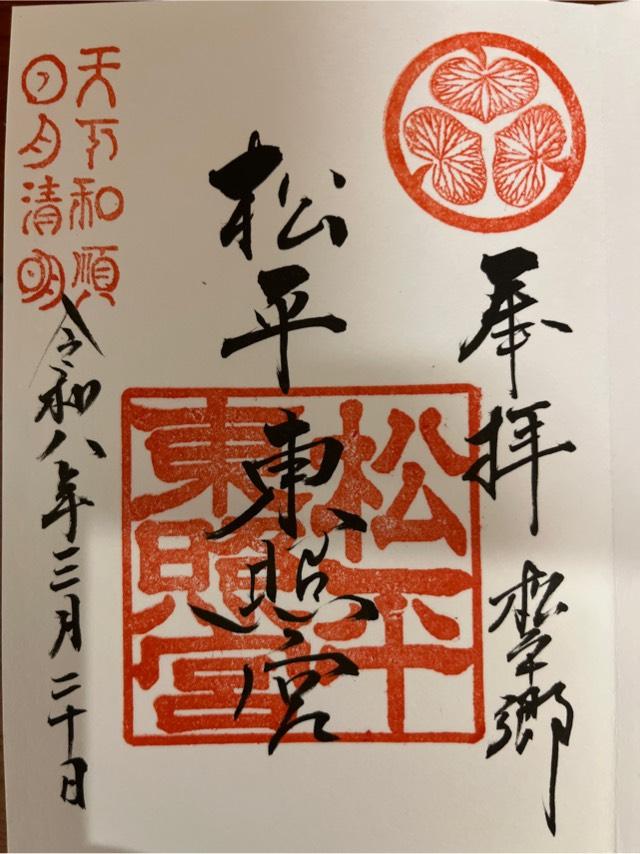 奉拝
松平郷
松平東照宮
松平
東照宮
天下和順
日月清明
令和八年三月二十日